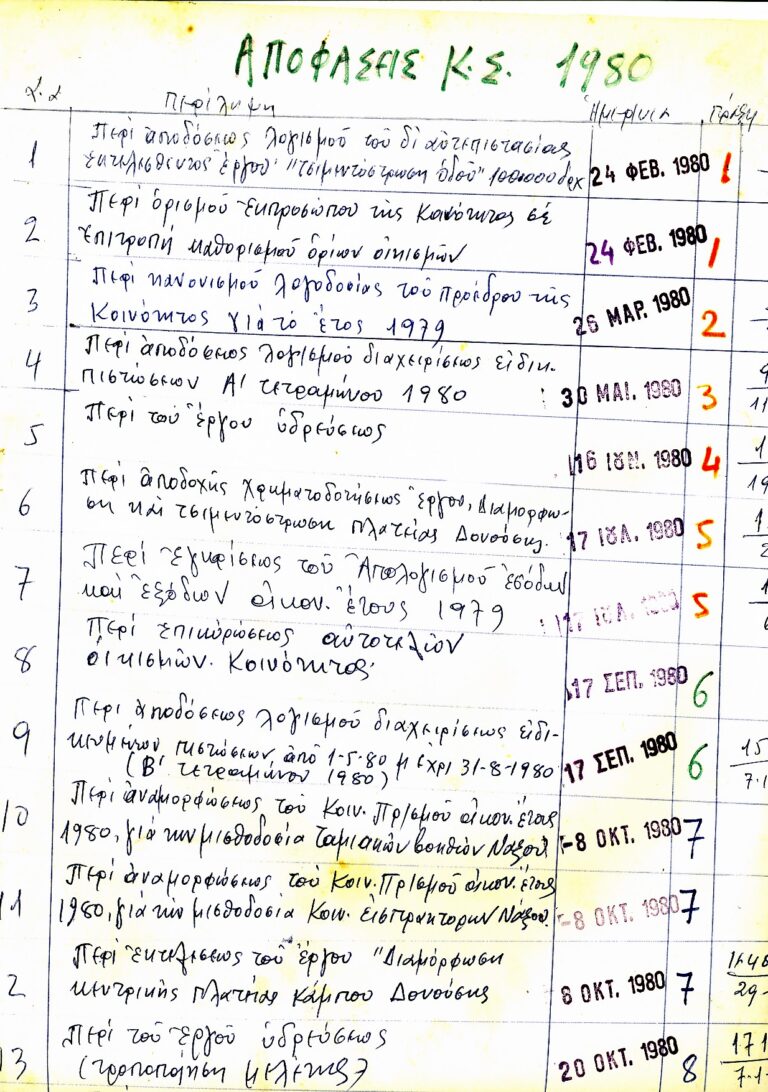 ΑΠΟΦΑΣΕΙΣ Κ.Σ. 1980
Περίληψη
1 Περί ἀποδόσεως λογισμοῦ τοῦ δι αὐτεπιστασίας 24 ΦΕΒ. 1980 1
ἐκτελεσθέντος ἔργου "τσιμεντόστρωση ὁδοῦ" 100.000 δρχ
2 Περί ὁρισμοῦ ἐκπροσώπου τῆς Κοινότητος σέ 24 ΦΕΒ. 1980 1
ἐπιτροπή καθορισμοῦ ὁρίων οἰκισμῶν
3 Περί κανονισμοῦ λογοδοσίας τοῦ προέδρου τῆς 26 ΜΑΡ. 1980 2
Κοινότητος γιά τό ἔτος 1979
4 Περί ἀποδόσεως λογισμοῦ διαχειρίσεως εἰδικ. 30 ΜΑΙ. 1980 3
πιστώσεων Α' τετραμήνου 1980
5 Περί τοῦ ἔργου ὑδρεύσεως 16 ΙΟΥΝ. 1980 4
6 Περί ἀποδοχῆς χρηματοδοτήσεως ἔργου, Διαμορφω- 17 ΙΟΥΛ. 1980 5
ση καί τσιμεντόστρωση πλατείας Δονούσης.
7 Περί ἐγκρίσεως τοῦ Ἀπολογισμοῦ ἐσόδων 17 ΙΟΥΛ. 1980 5
καί ἐξόδων οἰκον. ἔτους 1979
8 Περί ἐπικυρώσεως αὐτοτελῶν 17 ΣΕΠ. 1980 6
οἰκισμῶν Κοινότητος
9 Περί ἀποδόσεως λογισμοῦ διαχειρίσεως εἰδι- 17 ΣΕΠ. 1980 6
κευμένων πιστώσεων ἀπό 1-5-80 μέχρι 31-8-1980
(Β' τετραμήνου 1980)
10 Περί ἀναμορφώσεως τοῦ Κοιν. Π/σμοῦ οἰκον. ἔτους -8 ΟΚΤ. 1980 7
1980, γιά τήν μισθοδοσία ταμιακῶν βοηθῶν Νάξου
11 Περί ἀναμορφώσεως τοῦ Κοιν. Π/σμοῦ οἰκον. ἔτους -8 ΟΚΤ. 1980 7
1980, γιά τήν μισθοδοσία Κοιν. εἰσπρακτόρων Νάξου.
2 Περί ἐκτελέσεως τοῦ ἔργου "Διαμόρφωση 8 ΟΚΤ. 1980 7
κεντρικῆς πλατείας Κάμπου Δονούσης
3 Περί τοῦ ἔργου ὑδρεύσεως 20 ΟΚΤ. 1980 8
(τροποποίηση μελέτης)